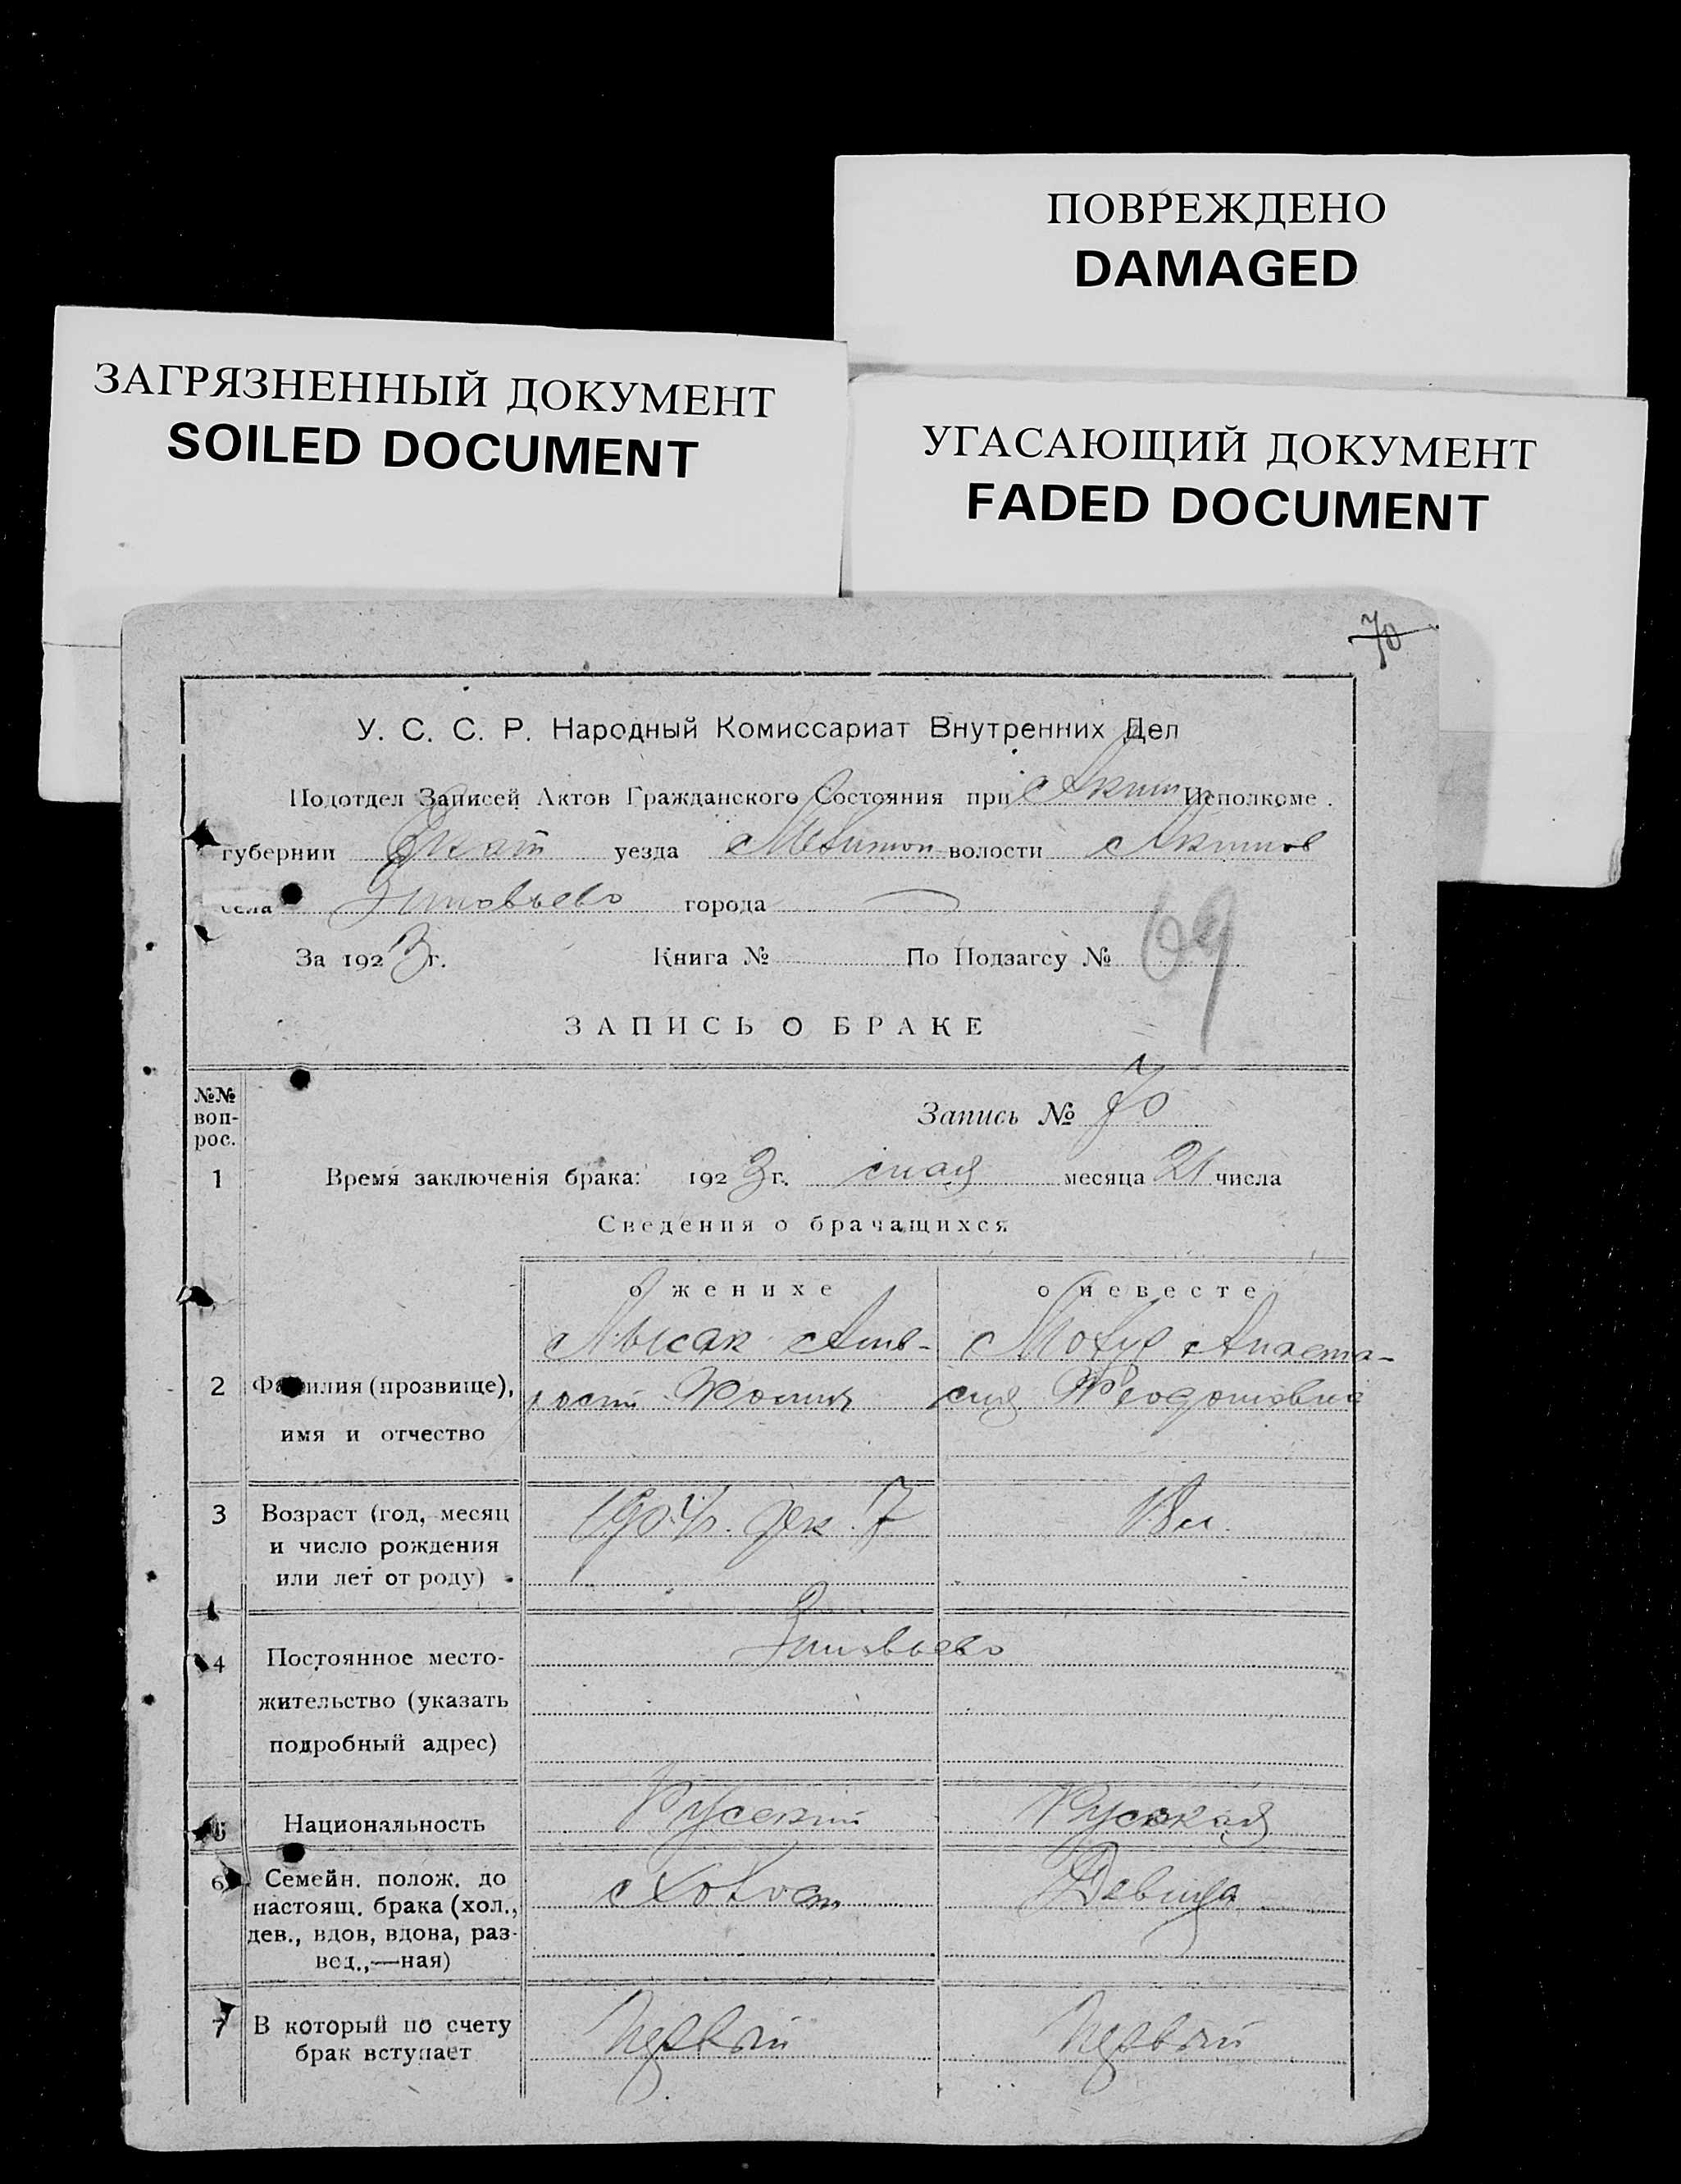 ПОВРЕЖДЕНО
DAMAGED
ЗАГРЯЗНЕННЫЙ ДОКУМЕНТ
SOILED DOCUMENT
УГАСАЮЩИЙ ДОКУМЕНТ
FADED DOCUMENT
70
У. С. С. Р. Народный Комиссариат Внутренних Дел
Подотдел Записей Актов Гражданского Состояния при Аким Исполкоме.
губернии Екат уезда Мелитоп волости Акимов
села Зиновьево города
За 1923 г. Книга № По Подзагсу № 69
ЗАПИСЬ О БРАКЕ
№№ воп-рос.
Запись № 70
1 Время заключенія брака: 1923 г. мая месяца 21 числа
Сведения о брачащихся
о женихе о невесте
Лысак Мотуз Анаста-
2 Фамилия (прозвище), сия Феодотовна
имя и отчество
3 Возраст (год, месяц 1904 г. дек. 7 18 л.
и число рождения
или лет от роду)
Зиновьево
4 Постоянное место-
жительство (указать
подробный адрес)
5 Национальность Русский Русская
6 Семейн. полож. до Холост Девица
настоящ. брака (хол.,
дев., вдов, вдова, раз-
вед.,—ная)
7 В который по счету Первый Первый
брак вступает